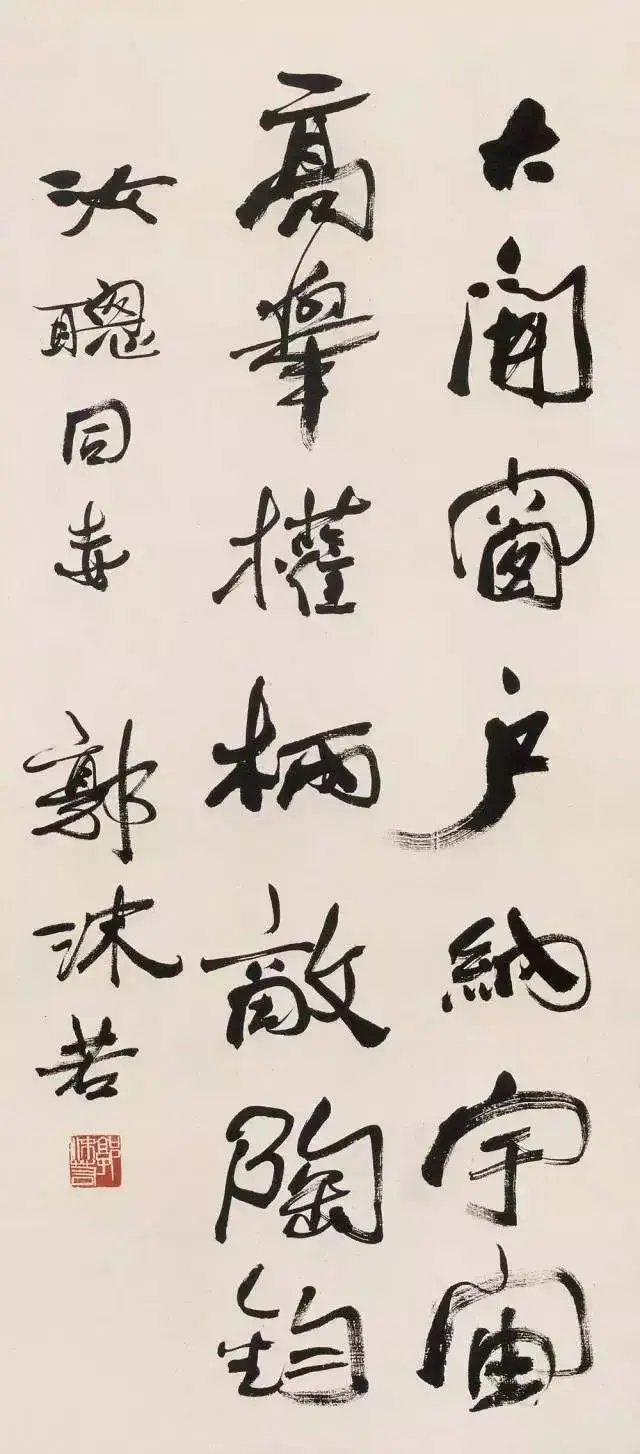 大開窗户納宇宙
高舉權柄敵陶鈞
汝聰同志 郭沫若
郭沫若